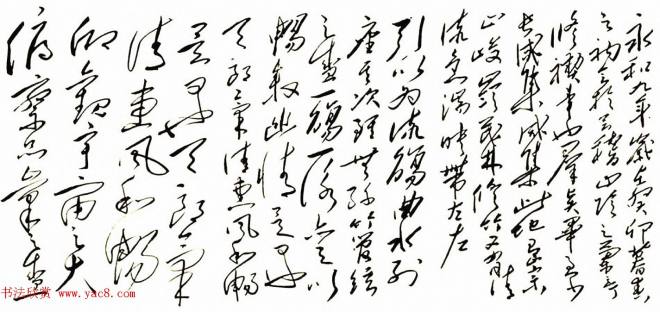 永和九年歲在癸卯暮春
之初會於會稽山陰之蘭亭
修禊事也群賢畢至少
長咸集咸集此地有崇
山峻嶺茂林修竹又有清
流急湍映帶左右
引以為流觴曲水列
座其次雖無絲竹管絃
之盛一觴一詠亦足以
暢敘幽情是日也
天朗氣清惠風和暢
是日也天朗氣
清惠風和暢
仰觀宇宙之大
俯察品類之盛
书法欣赏 www.yac8.com